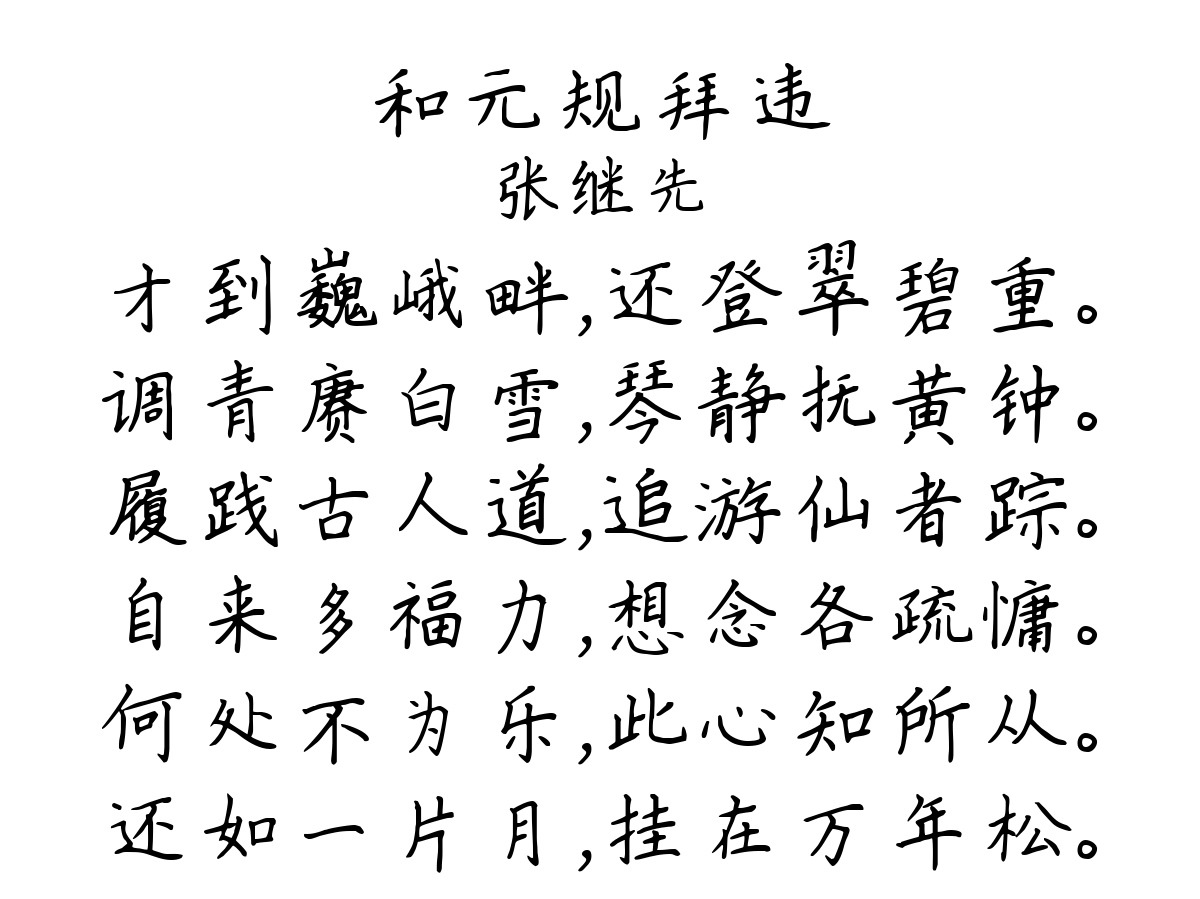 和元规拜违
张继先
才到巍峨畔,还登翠碧重。
调青赓白雪,琴静抚黄钟。
履践古人道,追游仙者踪。
自来多福力,想念各疏慵。
何处不为乐,此心知所从。
还如一片月,挂在万年松。